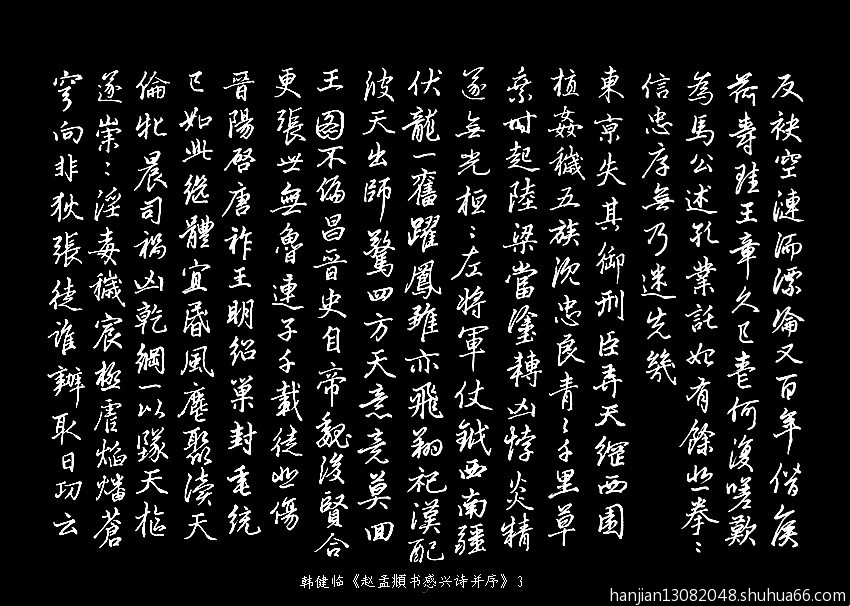 反袂空漣洏漂淪又百年僭侯
荷爵珪王章久已喪何復嗟歎
為馬公述孔業託始有餘悲拳〻
信忠厚無乃迷先幾
東京失其御刑臣弄天綱西園
植姦穢五族沉忠良青〻千里草
乘時起陸梁當塗轉凶悖炎精
遂無光桓〻左將軍仗鉞西南疆
伏龍一奮躍鳳雛亦飛翔祀漢配
彼天出師驚四方天意竟莫回
王圖不偏昌晉史自帝魏後賢合
更張世無魯連子千載徒悲傷
晉陽啓唐祚王明紹巢封垂統
已如此繼體宜昏風麀聚瀆天
倫牝晨司禍凶乾綱一以墜天樞
遂崇〻淫毒穢宸極虐焰燔蒼
穹向非狄張徒誰辦取日功云
韩健临《赵孟頫书感兴诗并序》3
hanjian13082048.shuhua66.com